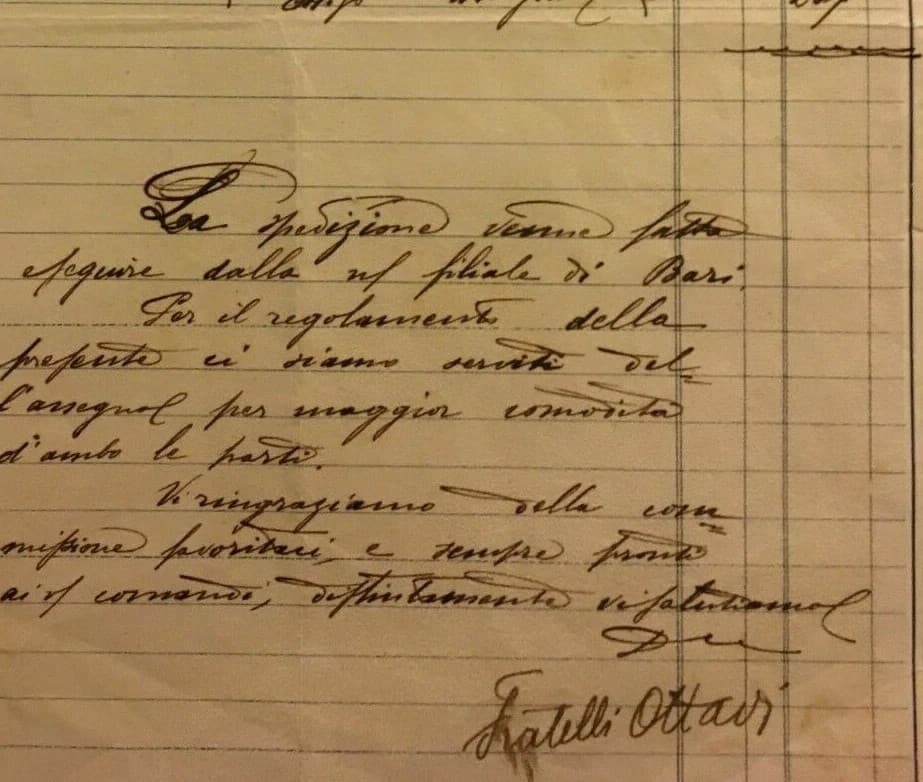 La spedizione venne fatta
eseguire dalla n/ filiale di Bari.
Per il regolamento della
presente ci siamo serviti del=
l'assegno per maggior comodità
d'ambo le parti.
Vi ringraziamo della com=
missione favoritaci, e sempre pronti
ai v/ comandi, distintamente vi salutiamo
Fratelli Ottavi